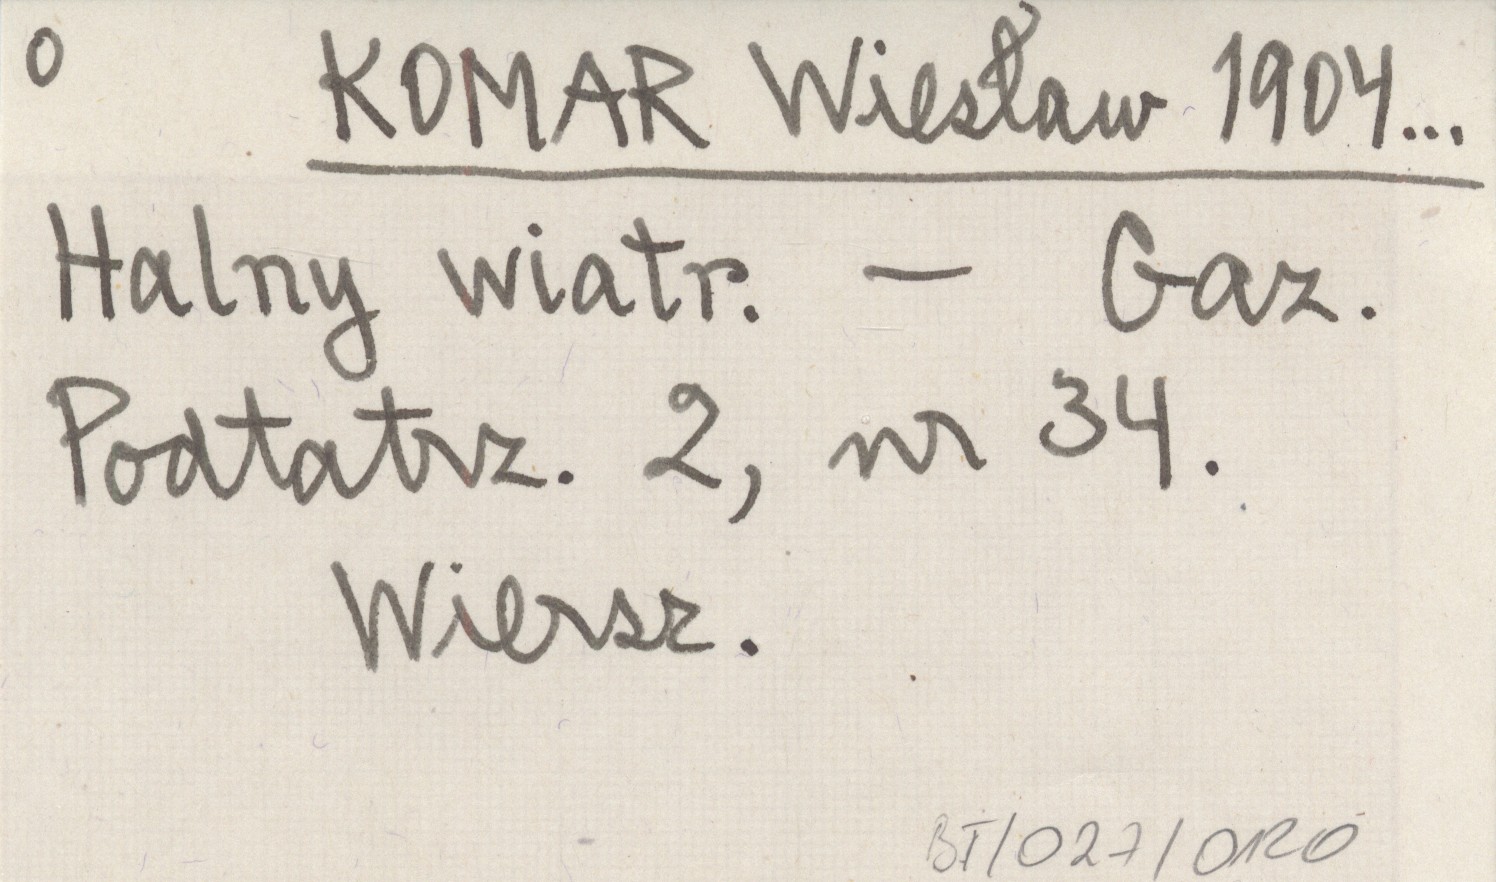 O KOMAR Wiesław 1904...
Halny wiatr. — Gaz.
Podtatrz. 2, nr 34.
Wiersz.
BT/027/0120